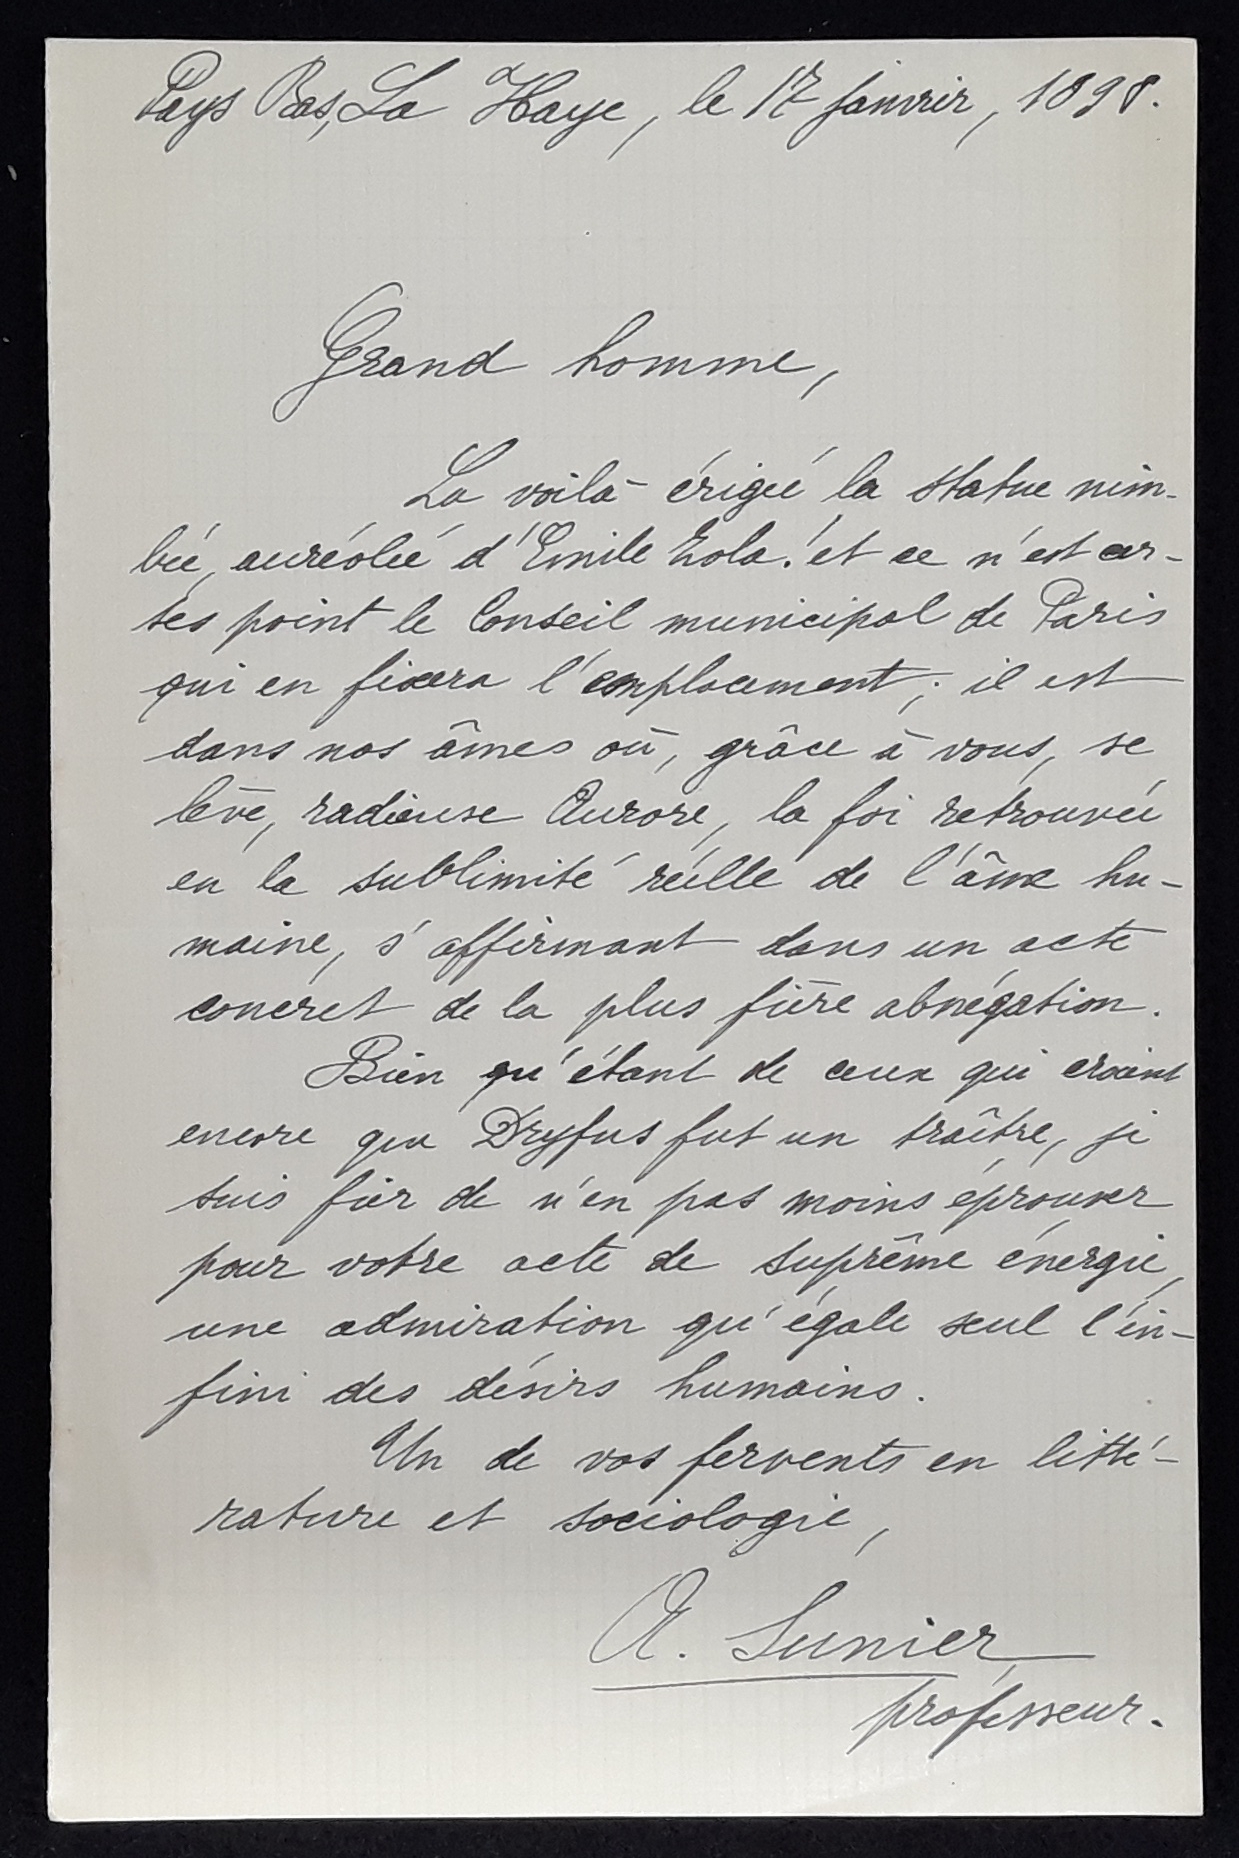 Pays Bas, La Haye, le 17 janvier, 1898.
Grand homme,
La voilà érigée la statue nim-
bée, auréolée d'Emile Zola! et ce n'est cer-
tes point le Conseil municipal de Paris
qui en fixera l'emplacement; il est
dans nos âmes où, grâce à vous, se
lève, radieuse Aurore, la foi retrouvée
en la sublimité réelle de l'âme hu-
maine, s'affirmant dans un acte
concret de la plus fière abnégation.
Bien qu'étant de ceux qui croient
encore que Dreyfus fut un traître, je
suis fier de n'en pas moins éprouver
pour votre acte de suprême énergie,
une admiration qu'égale seul l'in-
fini des désirs humains.
Un de vos fervents en litté-
rature et sociologie,
A. Sunier
professeur.